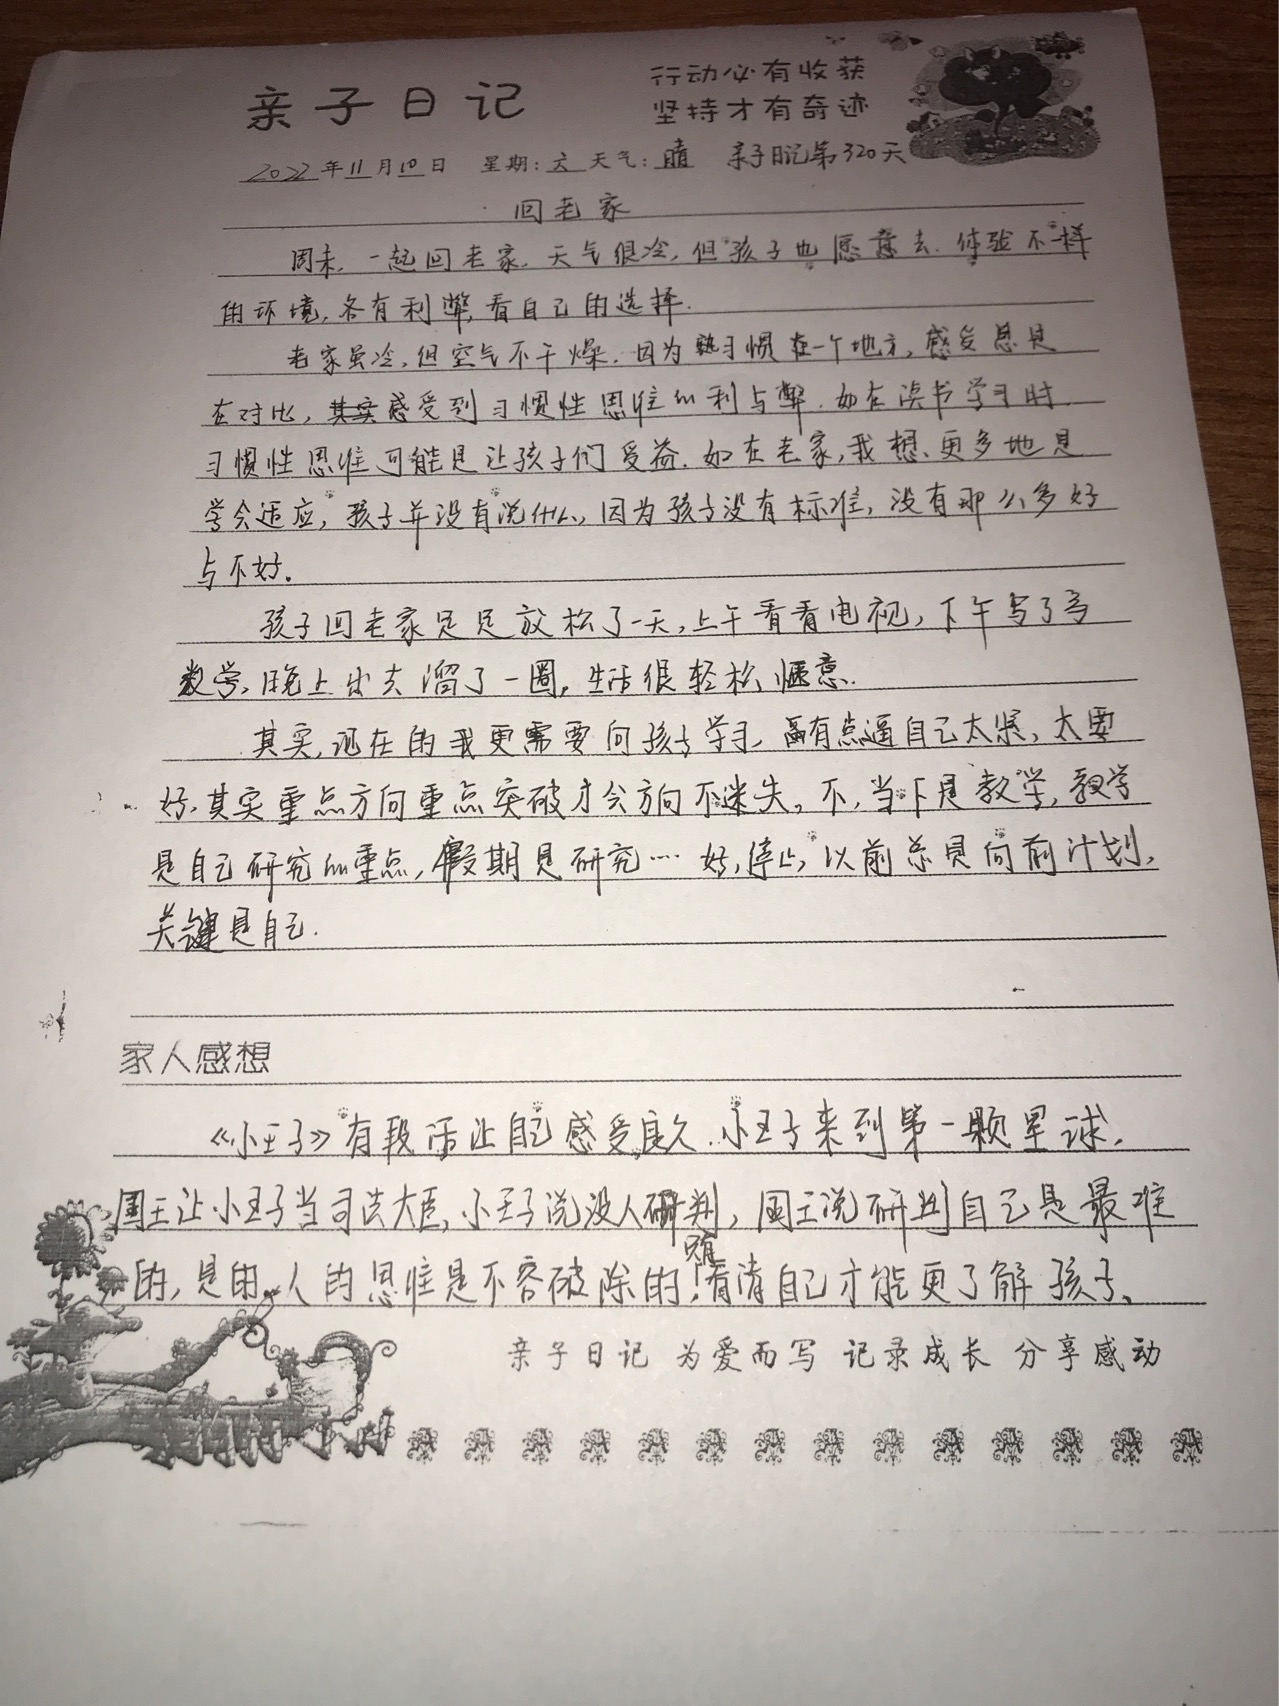 亲子日记
行动必有收获
坚持才有奇迹
2022年11月10日 星期:六 天气:晴 亲子日记第320天
回老家
周末,一起回老家,天气很冷,但孩子也愿意去,体验不一样
的环境,各有利弊,看自己的选择.
老家虽冷,但空气不干燥.因为熟习惯在一个地方,感受总是
在对比,其实感受到习惯性思维的利与弊.如在读书学习时.
习惯性思维可能是让孩子们受益.如在老家,我想,更多地是
学会适应,孩子并没有说什么,因为孩子没有标准,没有那么多好
与不好.
孩子回老家足足放松了一天,上午看看电视,下午写了写
数学,晚上出去溜了一圈,生活很轻松,惬意.
其实,现在的我更需要向孩子学习,有点逼自己太紧,太要
好,其实重点方向重点突破才会方向不迷失,不,当下是教学,教学
是自己研究的重点,假期是研究…好,停止,以前总是向前计划,
关键是自己.
家人感想
《小王子》有段话让自己感受良久.小王子来到第一颗星球,
国王让小王子当司法大臣,小王子说没人研判,国王说研判自己是最难
的,是的,人的思维是不容破除的!唯有看清自己才能更了解孩子、
亲子日记 为爱而写 记录成长 分享感动